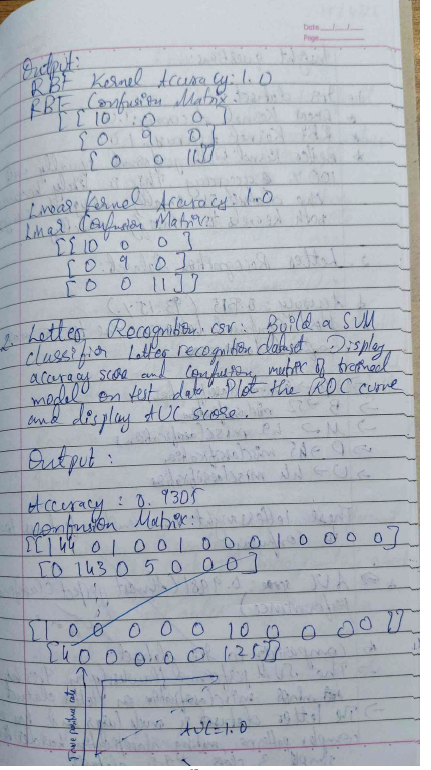 Date ___/___/___
Page ___
Output:
RBF Kernel Accuracy: 1.0
RBF Confusion Matrix:
[[10 0 0]
[0 9 0]
[0 0 11]]
Linear Kernel Accuracy: 1.0
Linear Confusion Matrix:
[[10 0 0]
[0 9 0]
[0 0 11]]
2. Letter Recognition.csv: Build a SVM
classifier Letter recognition dataset. Display
accuracy score and confusion matrix of trained
model on test data. Plot the ROC curve
and display AUC score.
Output:
Accuracy: 0.9305
Confusion Matrix:
[[144 0 1 0 0 1 0 0 0 1 0 0 0 0]
[0 143 0 5 0 0 0]
[1 0 0 0 0 0 10 0 0 0 0 0]]
[4 0 0 0 0 0 125]]
positive rate
AUC=1.0